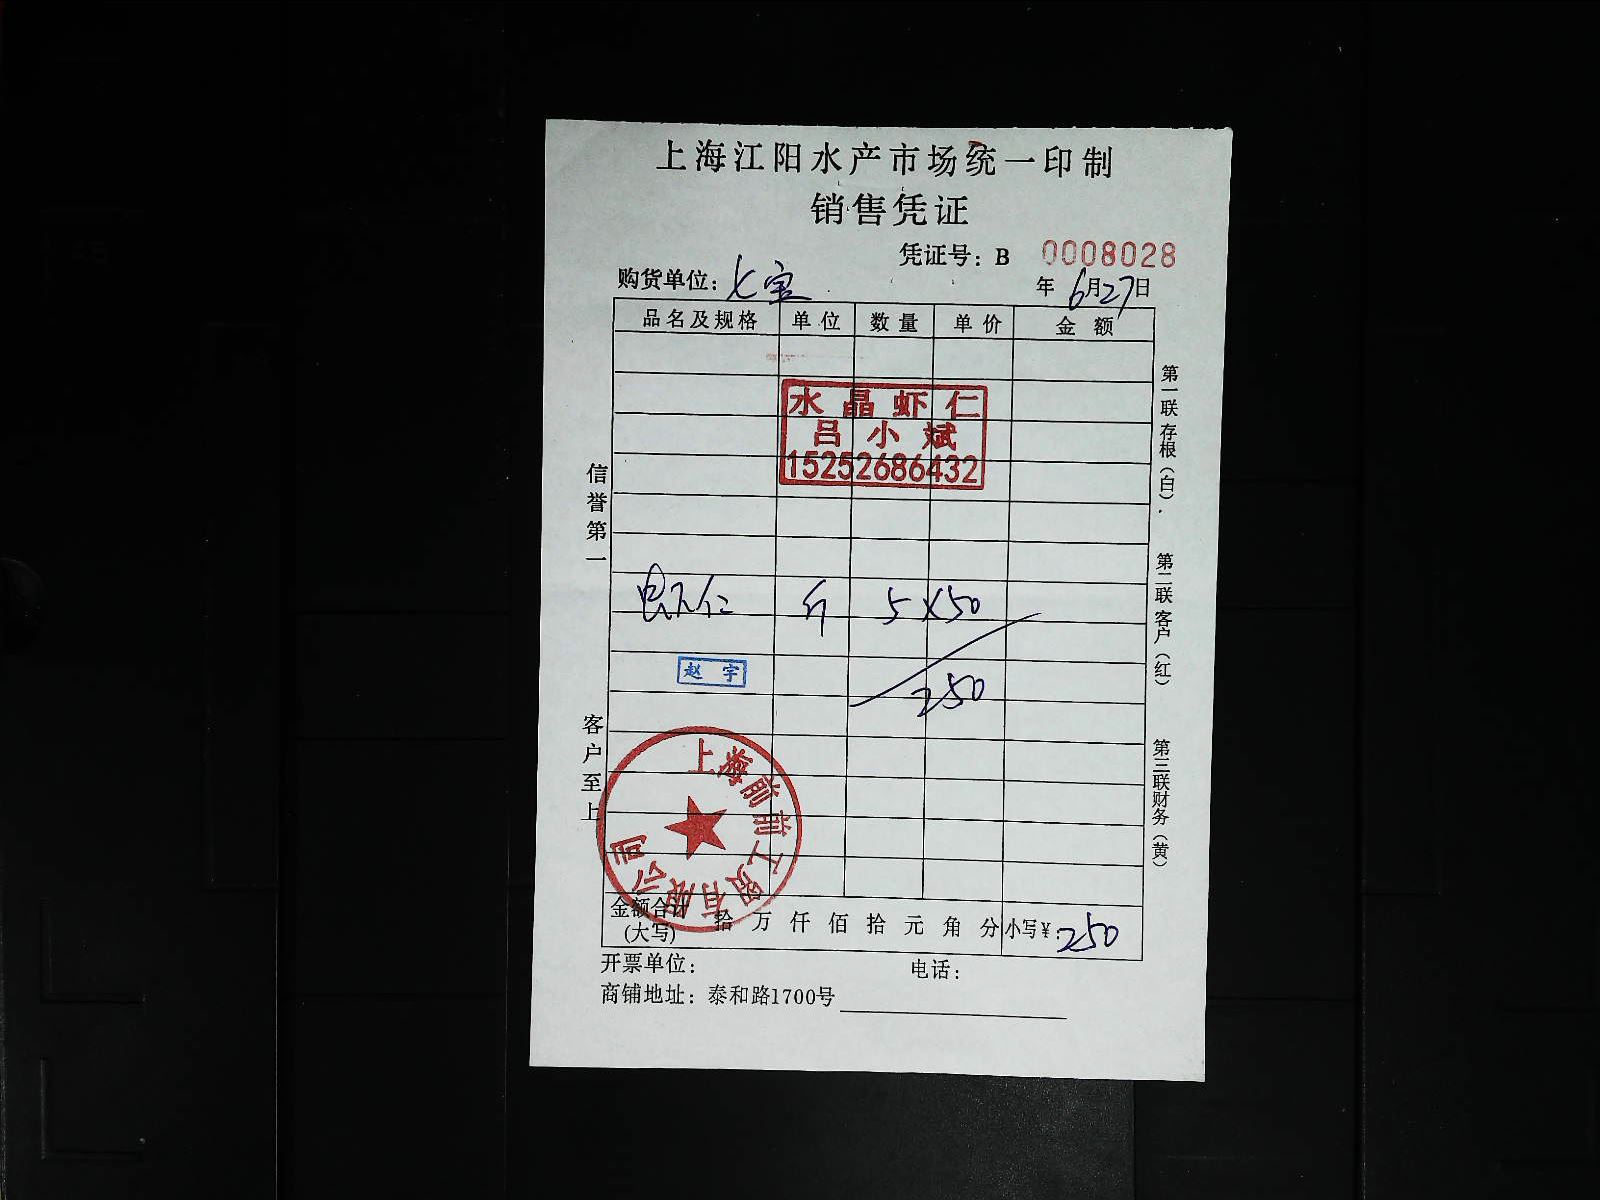 上海江阳水产市场统一印制
销售凭证
凭证号：B 0008028
购货单位：七宝 年6月27日
品名及规格 单位 数量 单价 金额
水晶虾仁
吕小斌
15252686432
虾仁 斤 5×50
赵宇
250
上海前前工贸有限公司
金额合计(大写) 拾万仟佰拾元角分 小写¥：250
开票单位： 电话：
商铺地址：泰和路1700号
信誉第一
客户至上
第一联存根（白）.
第二联客户（红）
第三联财务（黄）